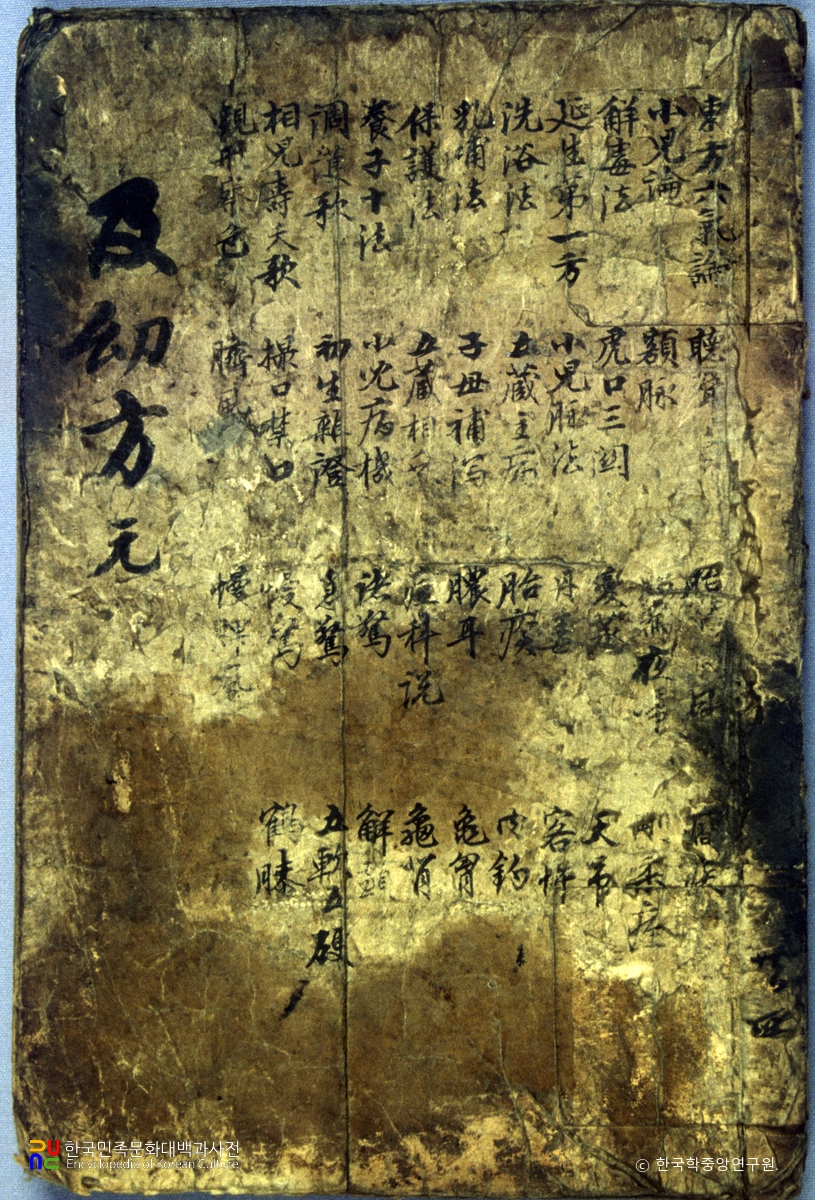 東方六氣論
小兒論
解毒法
延生第一方
洗浴法
乳哺法
保護法
養子十法
調護歌
相兒壽夭歌
觀形察色
聽聲
額脉
虎口三関
小兒脉法
五蔵主病
子母補瀉
五蔵相乘
小兒病機
初生雜證
撮口噤口
臍風
胎
夜啼
變蒸
丹毒
胎瘼
膿耳
科説
驚
急驚
慢驚
慢脾風
宿疾
剛柔痓
天吊
客忤
内釣
龜胷
龜背
解顱
五軟五硬
鶴膝
共四
及幼方 元
한국민족문화대백과사전
Encyclopedia of Korean Culture
© 한국학중앙연구원